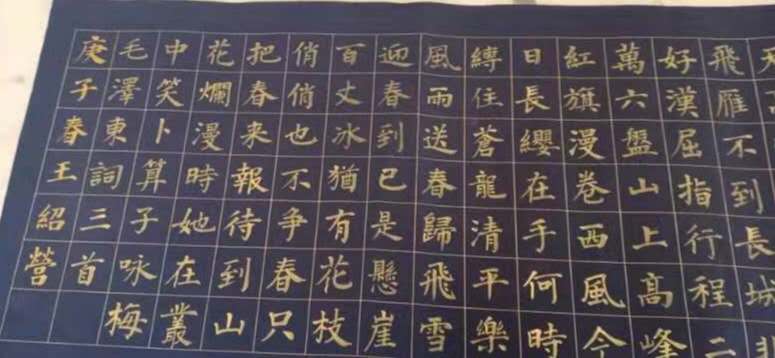 天
飛雁不到長城非
好漢屈指行程二
萬六盤山上高峰
紅旗漫卷西風今
日長纓在手何時
縛住蒼龍清平樂
風雨送春歸飛雪
迎春到已是懸崖
百丈冰猶有花枝
俏俏也不爭春只
把春来報待到山
花爛漫時她在叢
中笑卜算子咏梅
毛澤東詞三首
庚子春王紹營